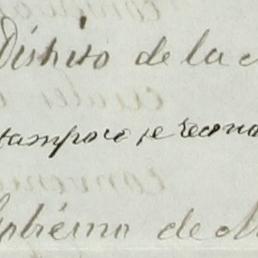 Distrito de la
tampoco se recono
Gobierno de M